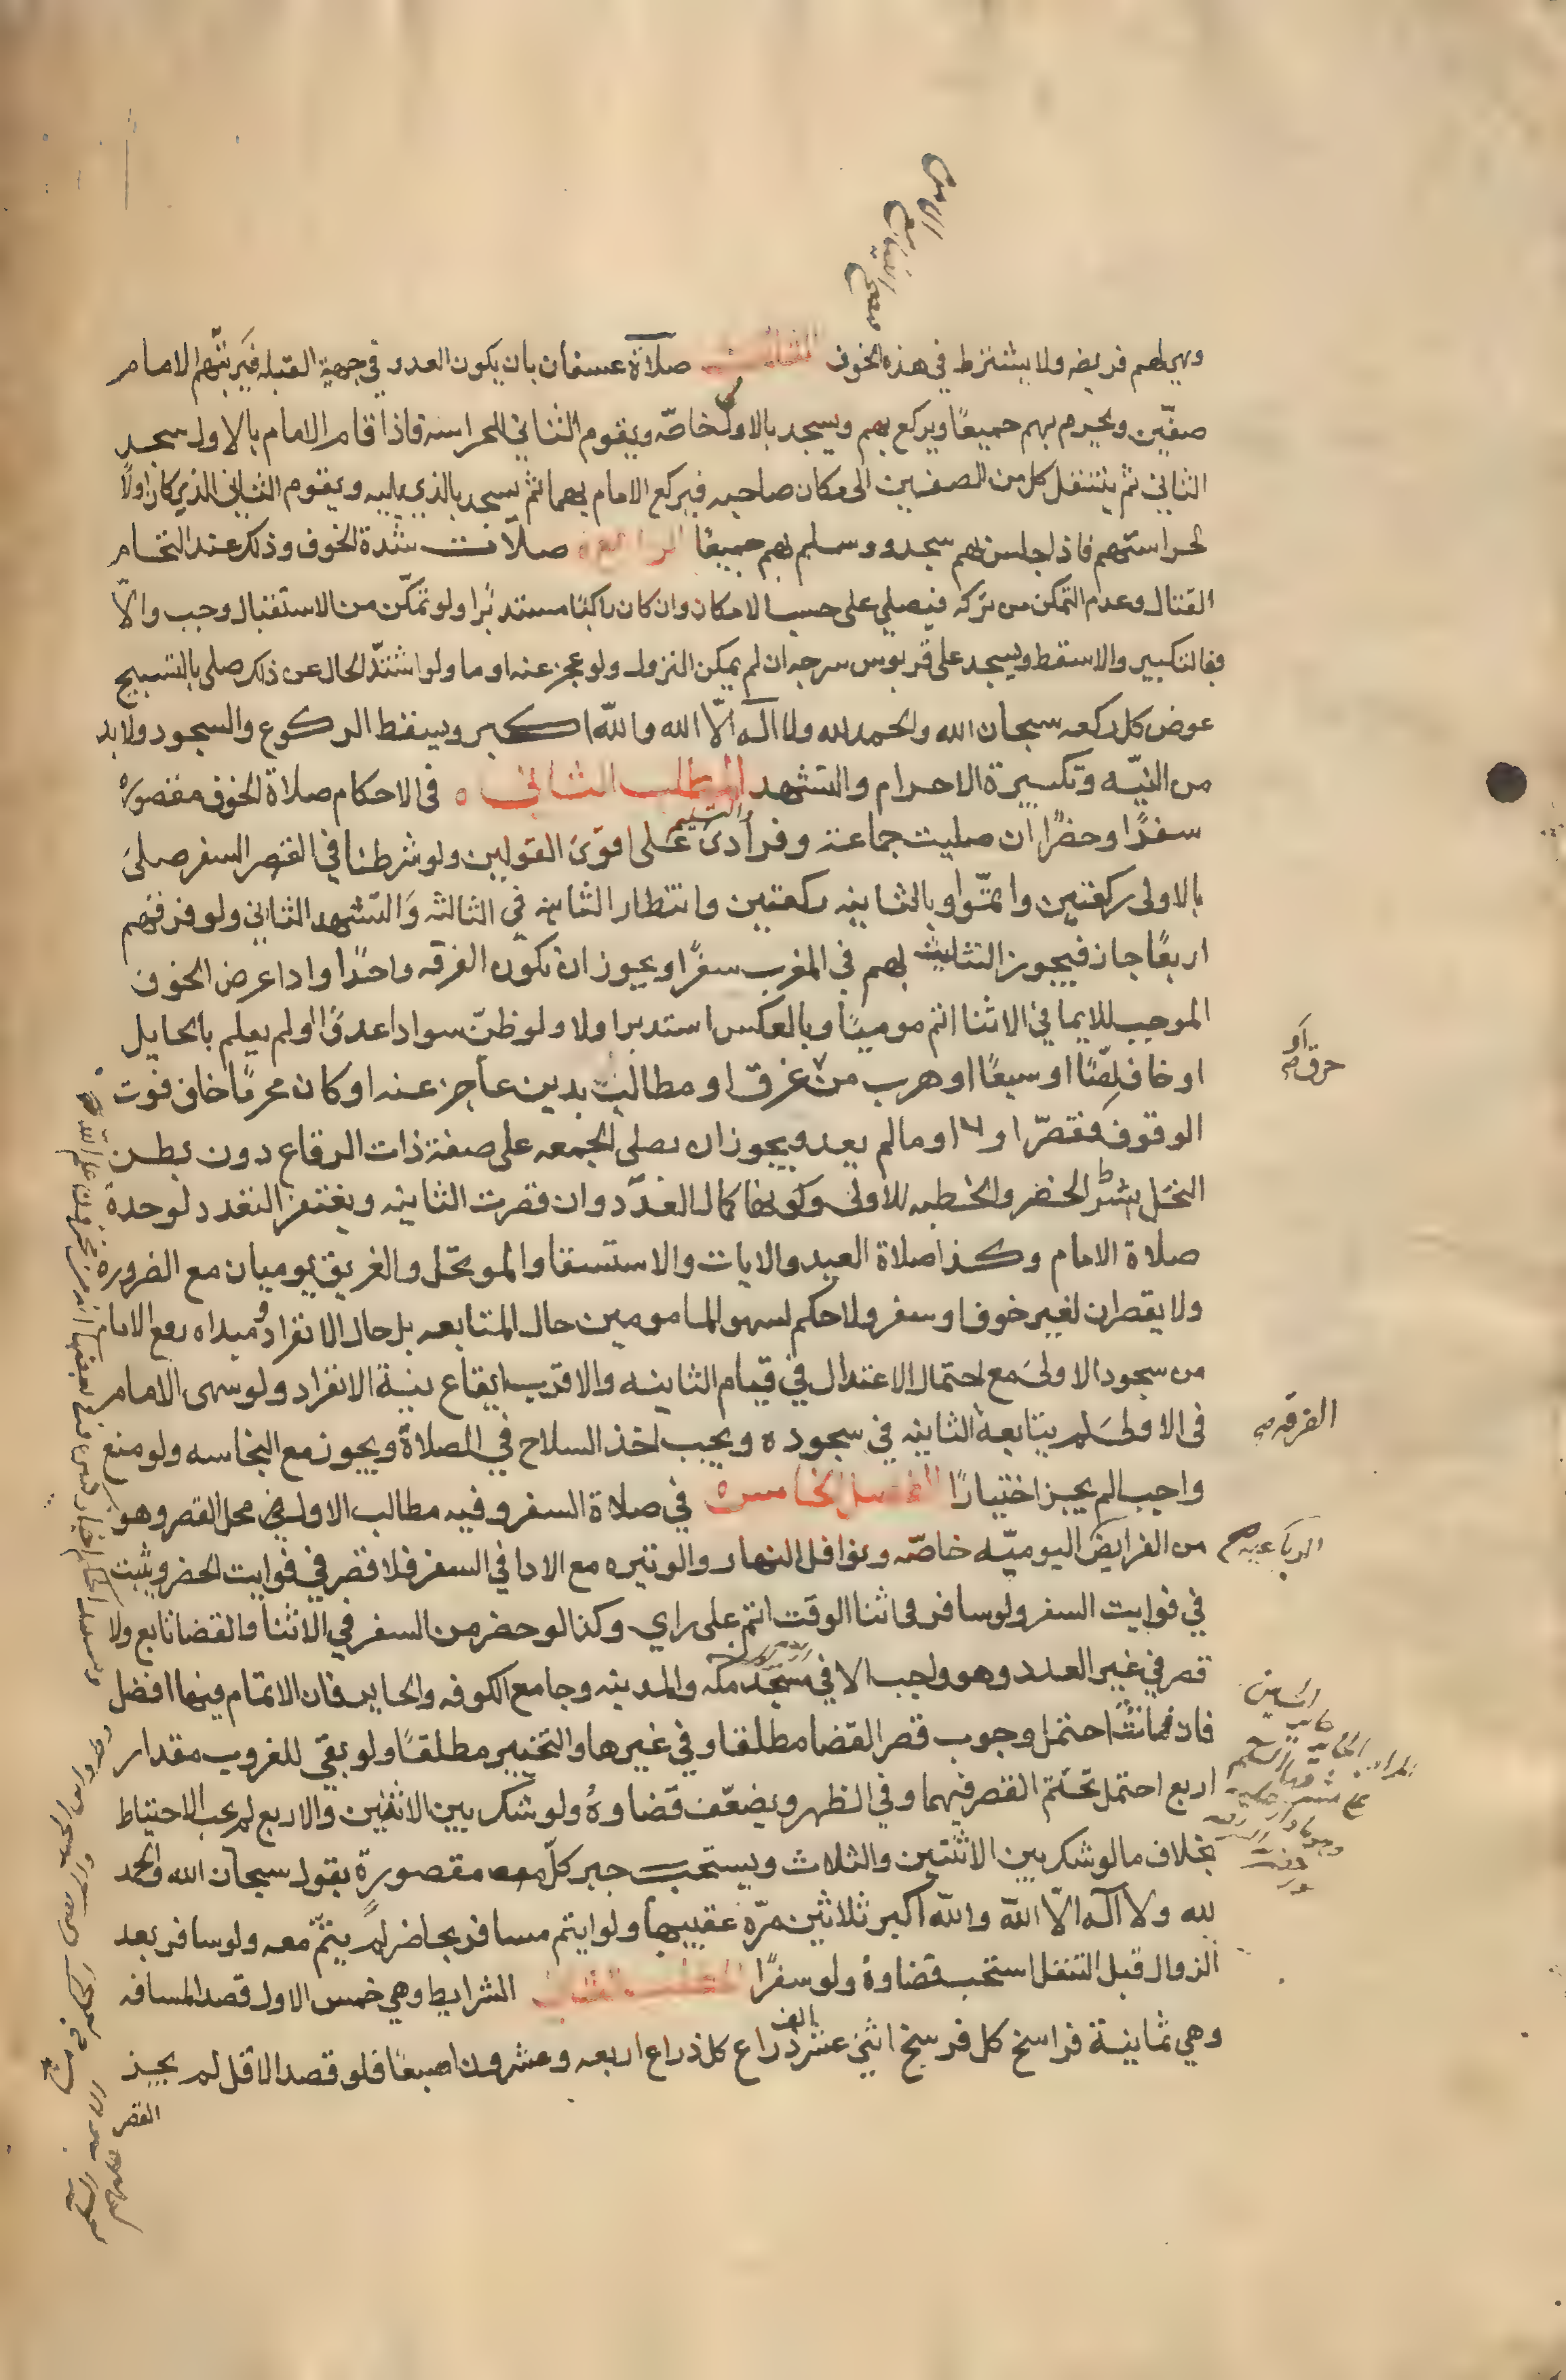 وهي لهم فريضه ولا يشترط في هذه الخوف الثالث صلاة عسفان بان يكون العدو في جهة القبله فيرتبهم الامام
صفّين ويحرم بهم جميعًا ويركع بهم ويسجد بالاول خاصّه ويقوم الثاني للحراسه فاذا قام الامام بالاول سجد
الثاني ثم ينتقل كل من الصفين الى مكان صاحبه فيركع الامام بهما ثم يسجد بالذي يليه ويقوم الثاني الذي كان اولاً
لحراستهم فاذا جلس بهم سجدو وسلم بهم جميعًا الرابع صلات شدة الخوف وذلك عند التحام
القتال وعدم التمكن من تركه فيصلي على حسب الامكان وان كان راكبًا مستدبرًا ولو تمكّن من الاستقبال وجب والّا
فبالتكبير والا سقط ويسجد على قربوس سرجه ان لم يمكن النزول ولو عجز عنه اوما ولو اشتدّ الحال عن ذلك صلى بالتسبيح
عوض كل ركعه سبحان الله والحمد لله ولا اله الّا الله والله اكبر ويسقط الركوع والسجود ولا بد
من النيّه وتكبيرة الاحرام والتشهد والتسليم المطلب الثاني ه في الاحكام صلاة الخوف مقصوره
سفرًا وحضرًا ان صليت جماعة وفرادى على اقوى القولين ولو شرطنا في القصر السفر صلى
بالاولى ركعتين واتمّوا وبالثانيه ركعتين وانتظار الثانيه في الثالثه والتشهد الثاني ولو فرقهم
اربعًا جاز فيجوز التثليث بهم في المغرب سفرًا ويجوز ان تكون الفرقه واحدًا واذا عرض الخوف
الموجب للايما في الاثنا اتم موميًا وبالعكس استدبر اولا ولو ظنّ سوادا عدوًا او لم يعلم بالحايل
او خاف لصًّا او سبعًا او هرب من غرق او مطالبٍ بدين عاجز عنه او كان محرمًا خاف فوت
او
حرق صح
الوقوف فقصّر او اوما لم يعد ويجوز ان يصلى الجمعه على صفة ذات الرقاع دون بطن
النخل بشرط الحضر والخطبه للاولى وكونها كمال العدّد وان قصرت الثانيه ويغتفر التعدد لوحدة
صلاة الامام وكذا صلاة العيد والايات والاستسقا والموتحل والغريق يوميان مع الضروره
ولا يقصران لغير خوف او سفر ولا حكم لسهو المامومين حال المتابعه بل حال الانفراد ومبداه رفع الامام
من سجود الاولى مع احتمال الاعتدال في قيام الثانيه والاقرب ايقاع نية الانفراد ولو سهى الامام
في الاولى لم يتابعه الثانيه في سجوده ويجب اخذ السلاح في الصلاة ويجوز مع النجاسه ولو منع
الفرقه صح
واجبا لم يجز اختيارًا الفصل الخامس ه في صلاة السفر وفيه مطالب الاول في محل القصر وهو
من الفرايض اليوميّه خاصّه ونوافل النهار والوتيره مع الادا في السفر فلا قصر في فوايت الحضر ويثبت
الرباعيه صح
في فوايت السفر ولو سافر في اثنا الوقت اتم على راي وكذا لو حضر من السفر في الاثنا والقضا تابع ولا
قصر في غير العدد وهو واجب الا في مسجد مكه والمدينه وجامع الكوفه والحاير فان الاتمام فيها افضل
فان فاتت احتمل وجوب قصر القضا مطلقا وفي غيرها والتخيير مطلقًا ولو بقي للغروب مقدار
اربع احتمل تحتّم القصر فيهما وفي الظهر ويضعّف قضاوهُ ولو شك بين الاثنين والاربع لم يجب الاحتياط
بخلاف ما لو شك بين الاثنتين والثلاث ويستحب جبر كل مقصورةٍ بقول سبحان الله والحمد
لله ولا اله الّا الله والله اكبر ثلاثين مرّة عقيبها ولو ايتم مسافر بحاضر لم يتمّ معه ولو سافر بعد
الزوال قبل التنفل استحب قضاوه ولو سفرًا المطلب الثاني الشرايط وهي خمس الاول قصد المسافه
وهي ثمانية فراسخ كل فرسخ اثني عشر الف ذراع كل ذراع اربعه وعشرون اصبعًا فلو قصد الاقل لم يجز
القصر